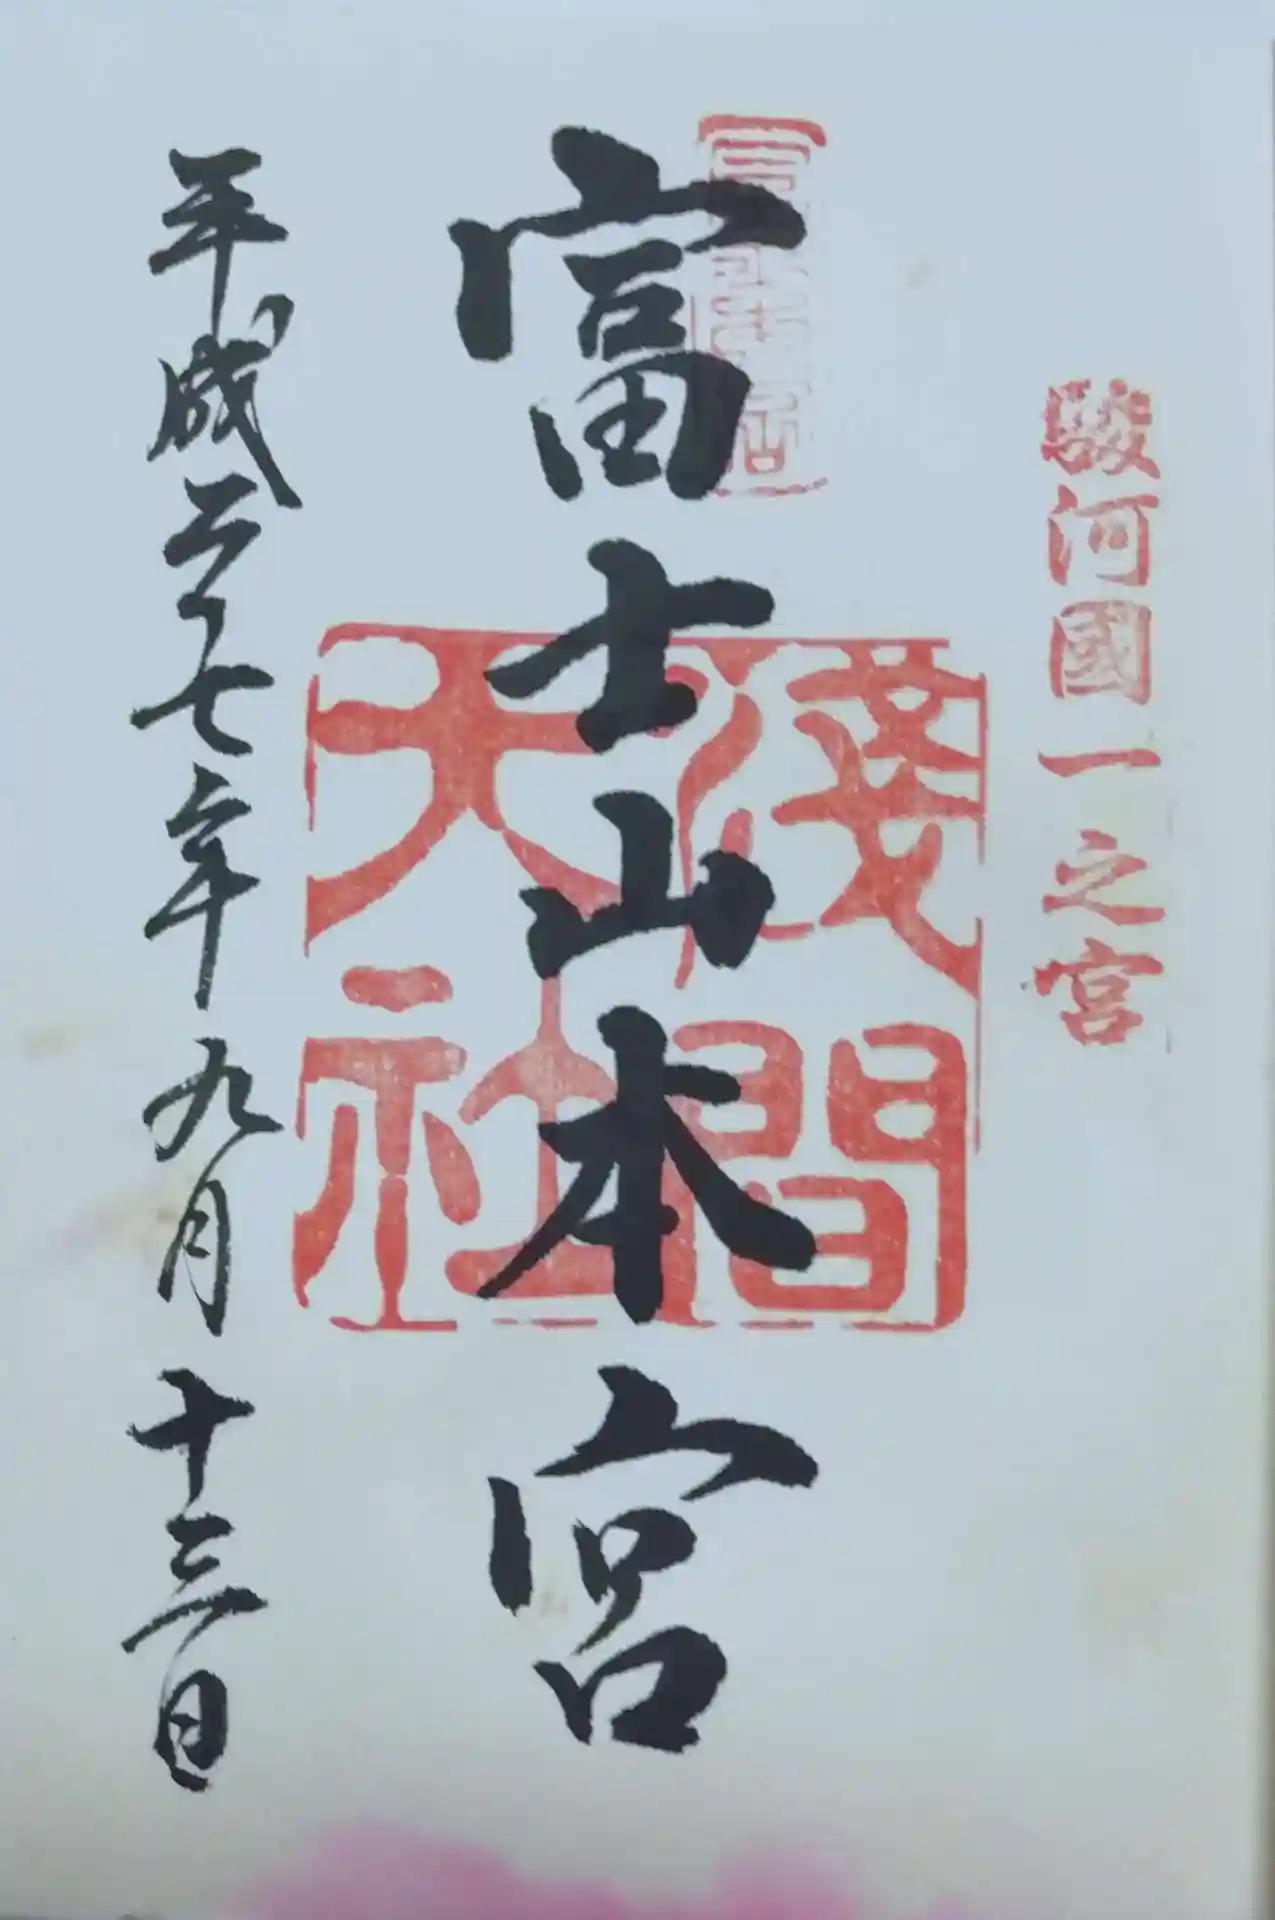 駿河國一之宮
富士山本宮
淺間
大社
平成二十七年九月十三日